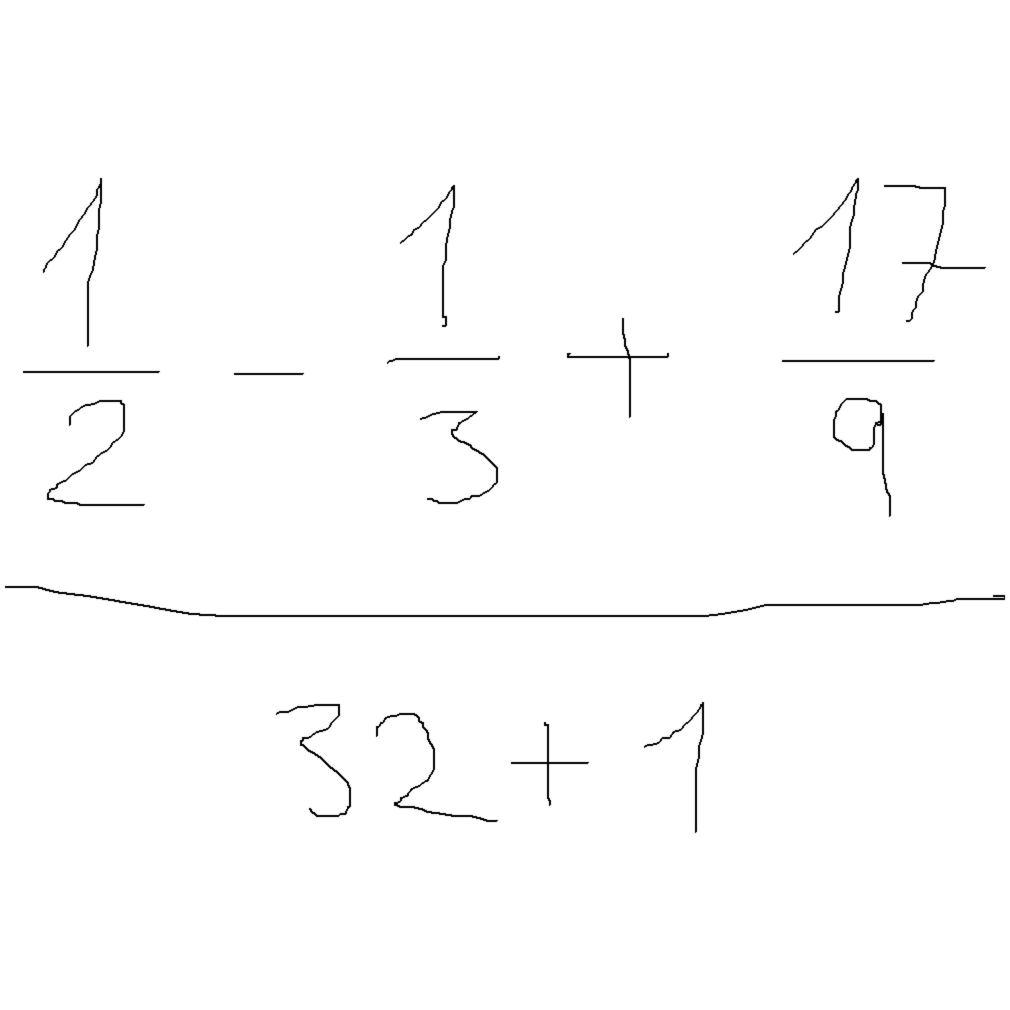 1/2 - 1/3 + 17/9
32 + 1